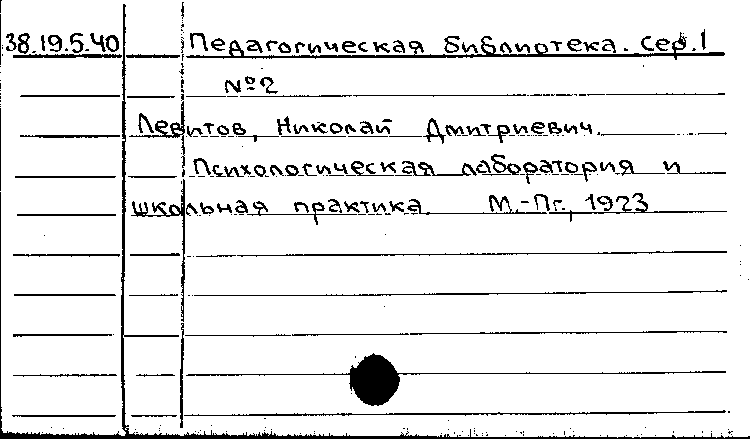 38.19.5.40 Педагогическая библиотека. Сер. 1
№2
Левитов, Николай Дмитриевич.
Психологическая лаборатория и
школьная практика. М.-Пг., 1923